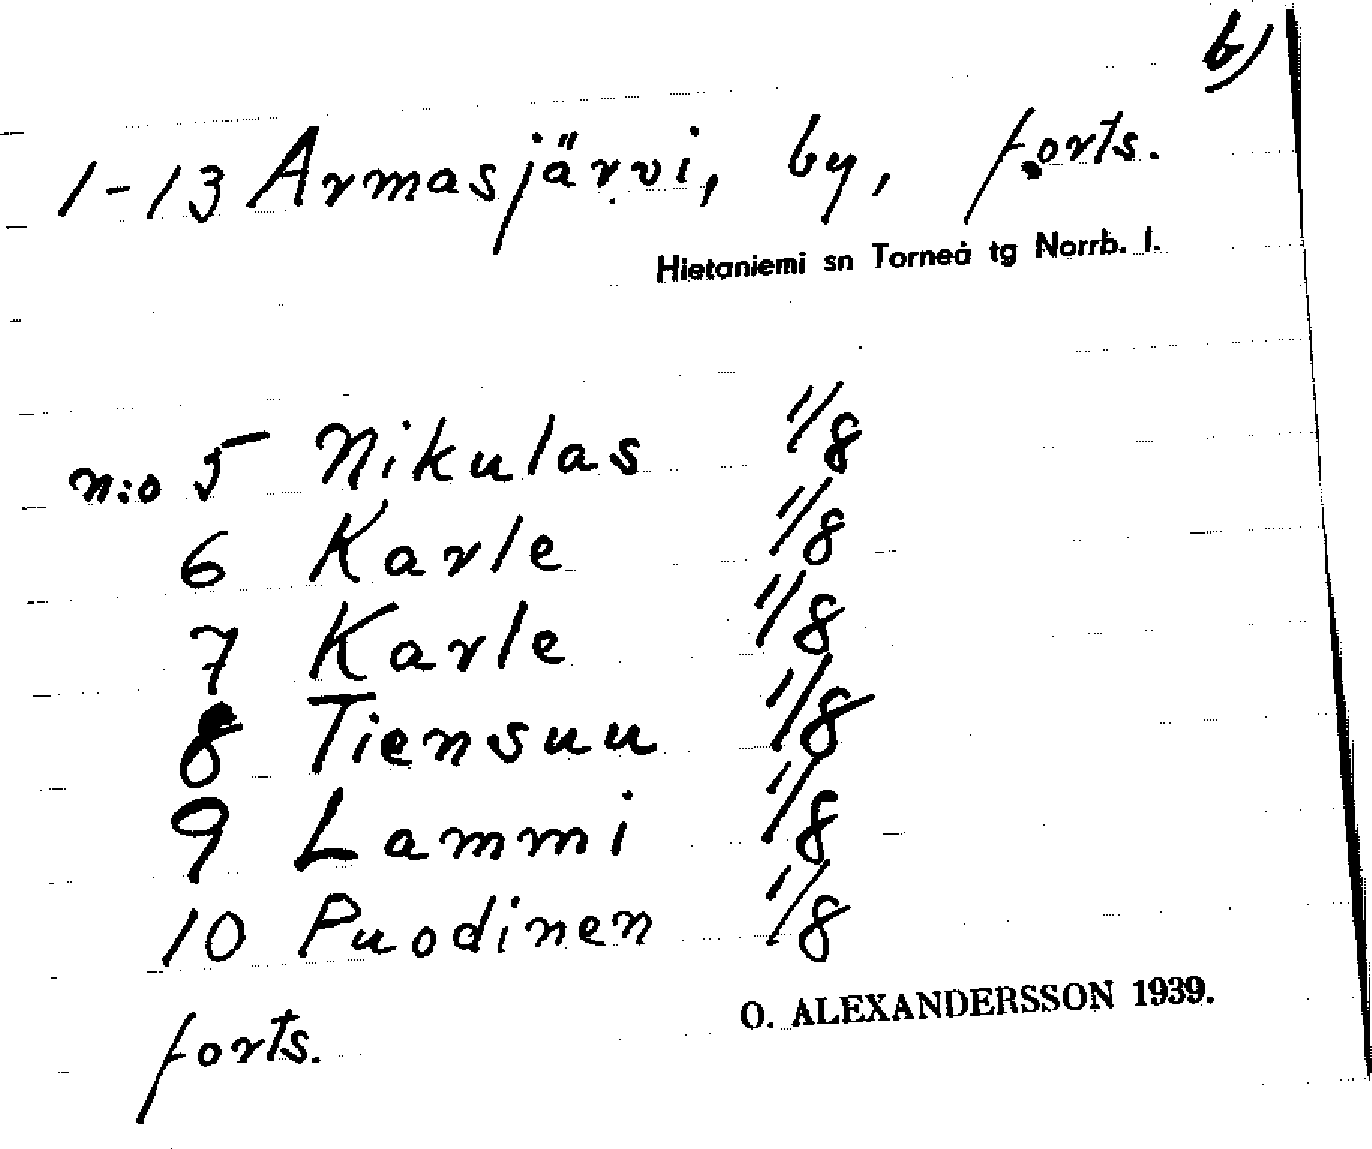 b)
1-13 Armasjärvi, by, forts.
Hietaniemi sn Torneå tg Norrb. l.
n:o 5 Nikulas 1/8
6 Karle 1/8
7 Karle 1/8
8 Tiensuu 1/8
9 Lammi 1/8
10 Puodinen 1/8
O. ALEXANDERSSON 1939.
forts.